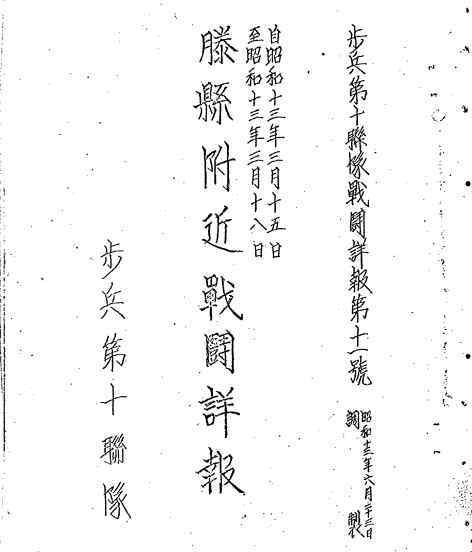 步兵第十聯隊戰鬪詳報第十一號
昭和十三年六月二十三日
調製
自昭和十三年三月十五日
至昭和十三年三月十八日
滕縣附近戰鬪詳報
步兵第十聯隊